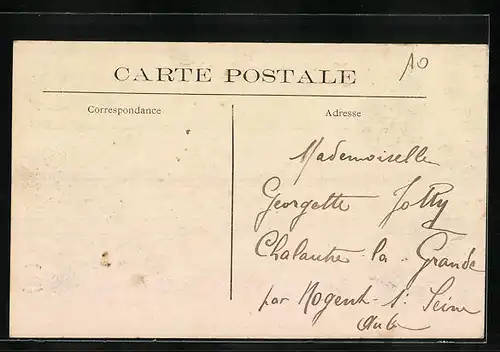 10
CARTE POSTALE
Correspondance
Adresse
Mademoiselle
Georgette Jolly
Chalautre-la-Grande
par Nogent-s/ Seine
Aube